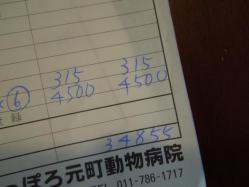 315 315
6 4500 4500
録
34855
ぽろ元町動物病院
TEL. 011-786-1717